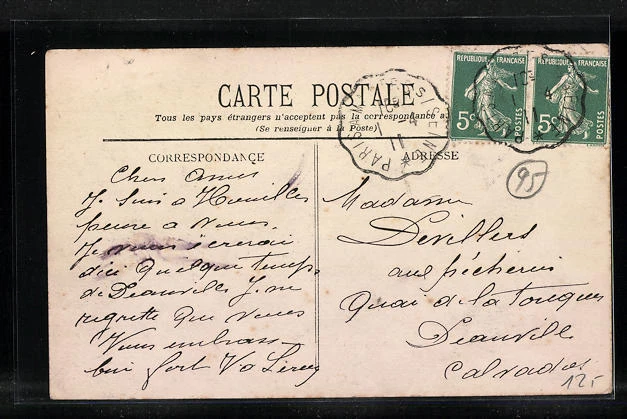 CARTE POSTALE
Tous les pays étrangers n'acceptent pas la correspondance a
(Se renseigner à la Poste)
REPUBLIQUE FRANÇAISE
5c POSTES
REPUBLIQUE FRANÇAISE
5c POSTES
CORRESPONDANCE
Chers Amis
Je suis a Houilles
pense a vous.
Je vous
dici quelque temps
de Deauville J. ne
regrette que vous
Vous embrass
bien fort Vo
ADRESSE
95
Madame
Devillers
aux pécheries
Quai de la Touques
Deauville
Calvados
12,-